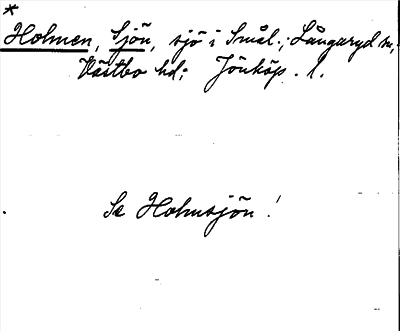 *
Holmen, Sjön, sjö i Smål.; Långaryd sn,
Västbo hd; Jönköp. l.
Se Holmsjön!